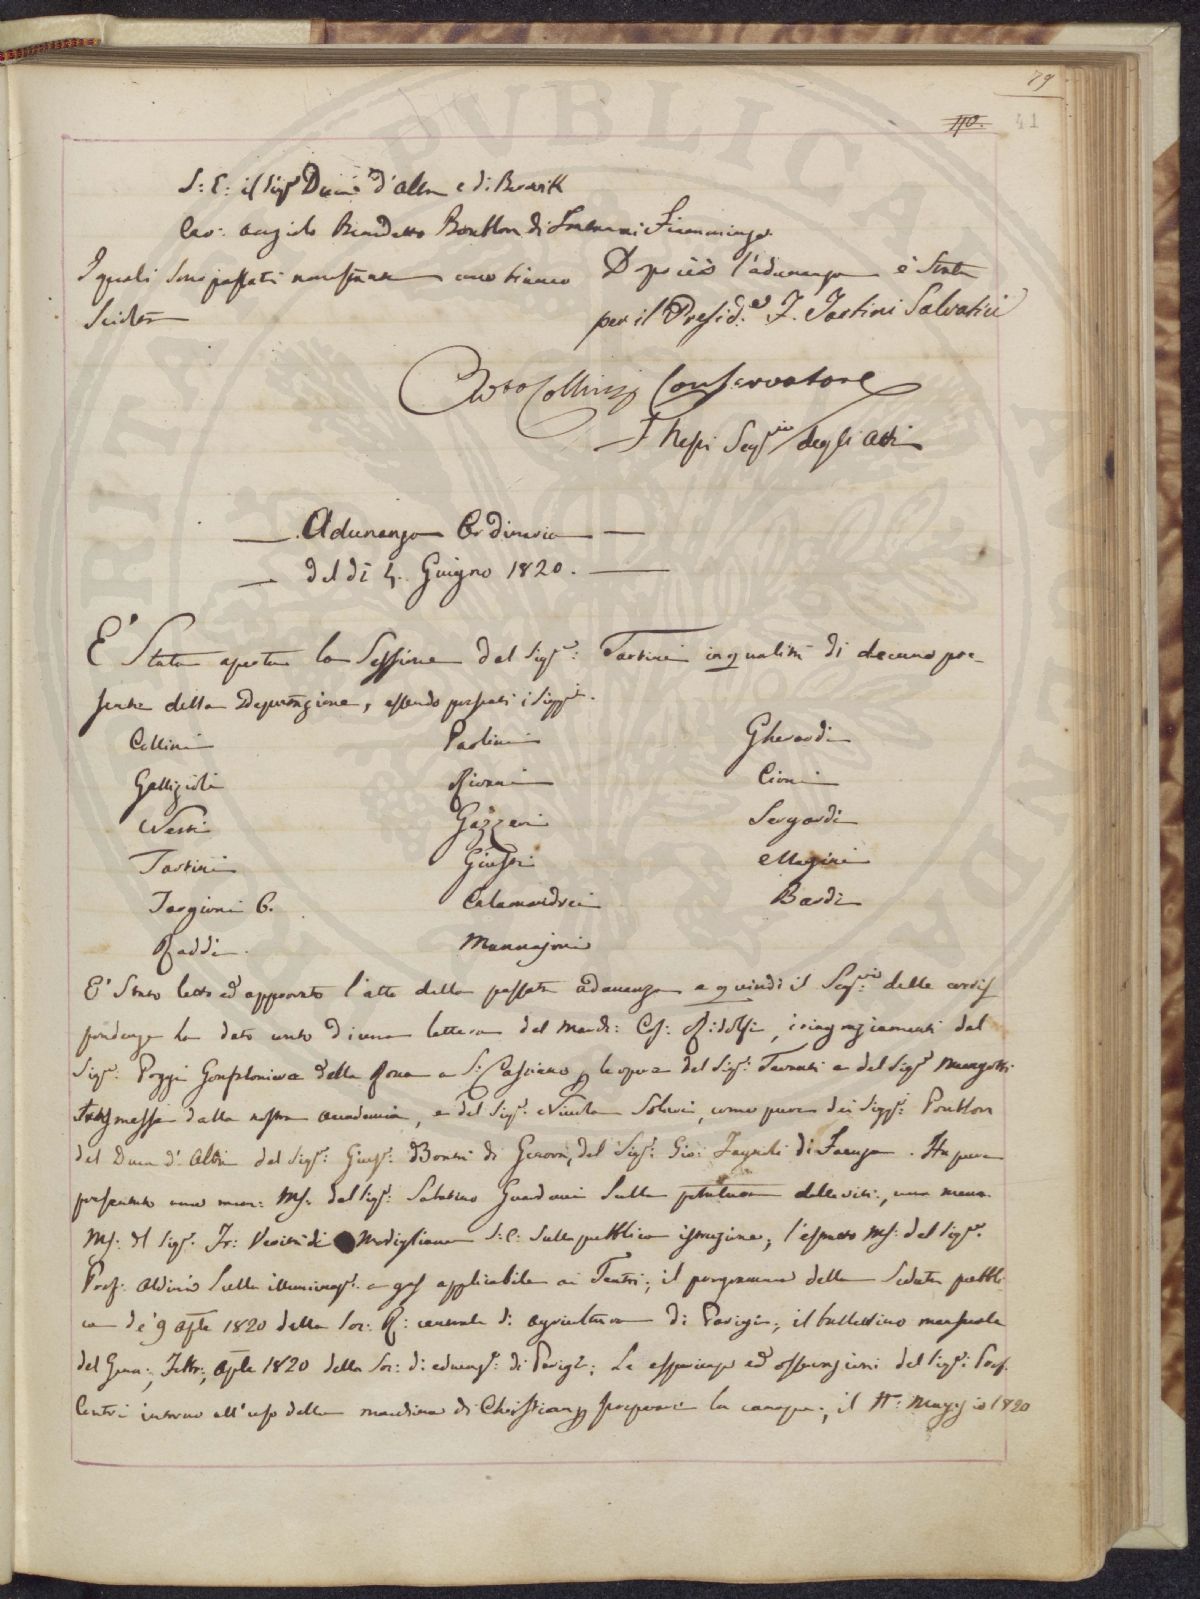 79
110. 41
S: E: il Sig.r Duca d'Alba e di Berwick
Cav: Angiolo Benedetto Bouthon di Fiammingo
I quali sono passati
Dopo ciò l'adunanza è stata
Sciolta
per il Presid.e F. Tartini Salvatici
Collini Conservatore
F Nesti Seg.rio degli Atti
Adunanza Ordinaria
del dì 4. Giugno 1820.
E' Stata aperta la Sessione dal Sig.r: Tartini in qualità di decano pre-
sente della Deputazione, essendo presenti i Sigg.ri
Collini Paolini Gherardi
Gallizioli Rivani Cioni
Nesti Gazzeri Sergardi
Tartini Giusti Magini
Targioni C. Calamandrei Bardi
Raddi. Mannajoni
E' Stato letto ed approvato l'atto della passata adunanza e quindi il Seg.rio delle corris
pondenze ha dato conto di una lettera del March: Cos: Ridolfi, i ringraziamenti del
Sig.r: Poggi Gonfaloniere della Rocca S. Casciano, le opere del Sig.r: Taverni e del Sig.r
Trasmesse dalla nostra Accademia, e del Sig.r: Nicola come pure dei Sigg.ri: Bouthon
del Duca d'Alba del Sig.r: Gius.e: di Genova, del Sig.r: Gio: di Faenza. Ha pure
presentato una mem: Ms: del Sig.r: Sabatino Guarducci Sulla potatura delle viti, una mem:
Ms: del Sig.r: Fr: di Modigliana S: C: sulla pubblica istruzione; l'estratto Ms: del Sig.r:
Prof: Aldini Sulla illuminaz.e: a gas applicabile ai Teatri; il programma della Seduta pubbli
ca de' 9 Aple 1820 della Soc: R: centrale di agricoltura di Parigi; il bullettino mensuale
del Genn:, Febb:, Aple 1820 della Soc: di educaz.e: di Parigi; Le esperienze ed osservazioni del Sig.r: Prof.
intorno all'uso della macchina di Christian preparare la canapa; il N.°: Maggio 1820